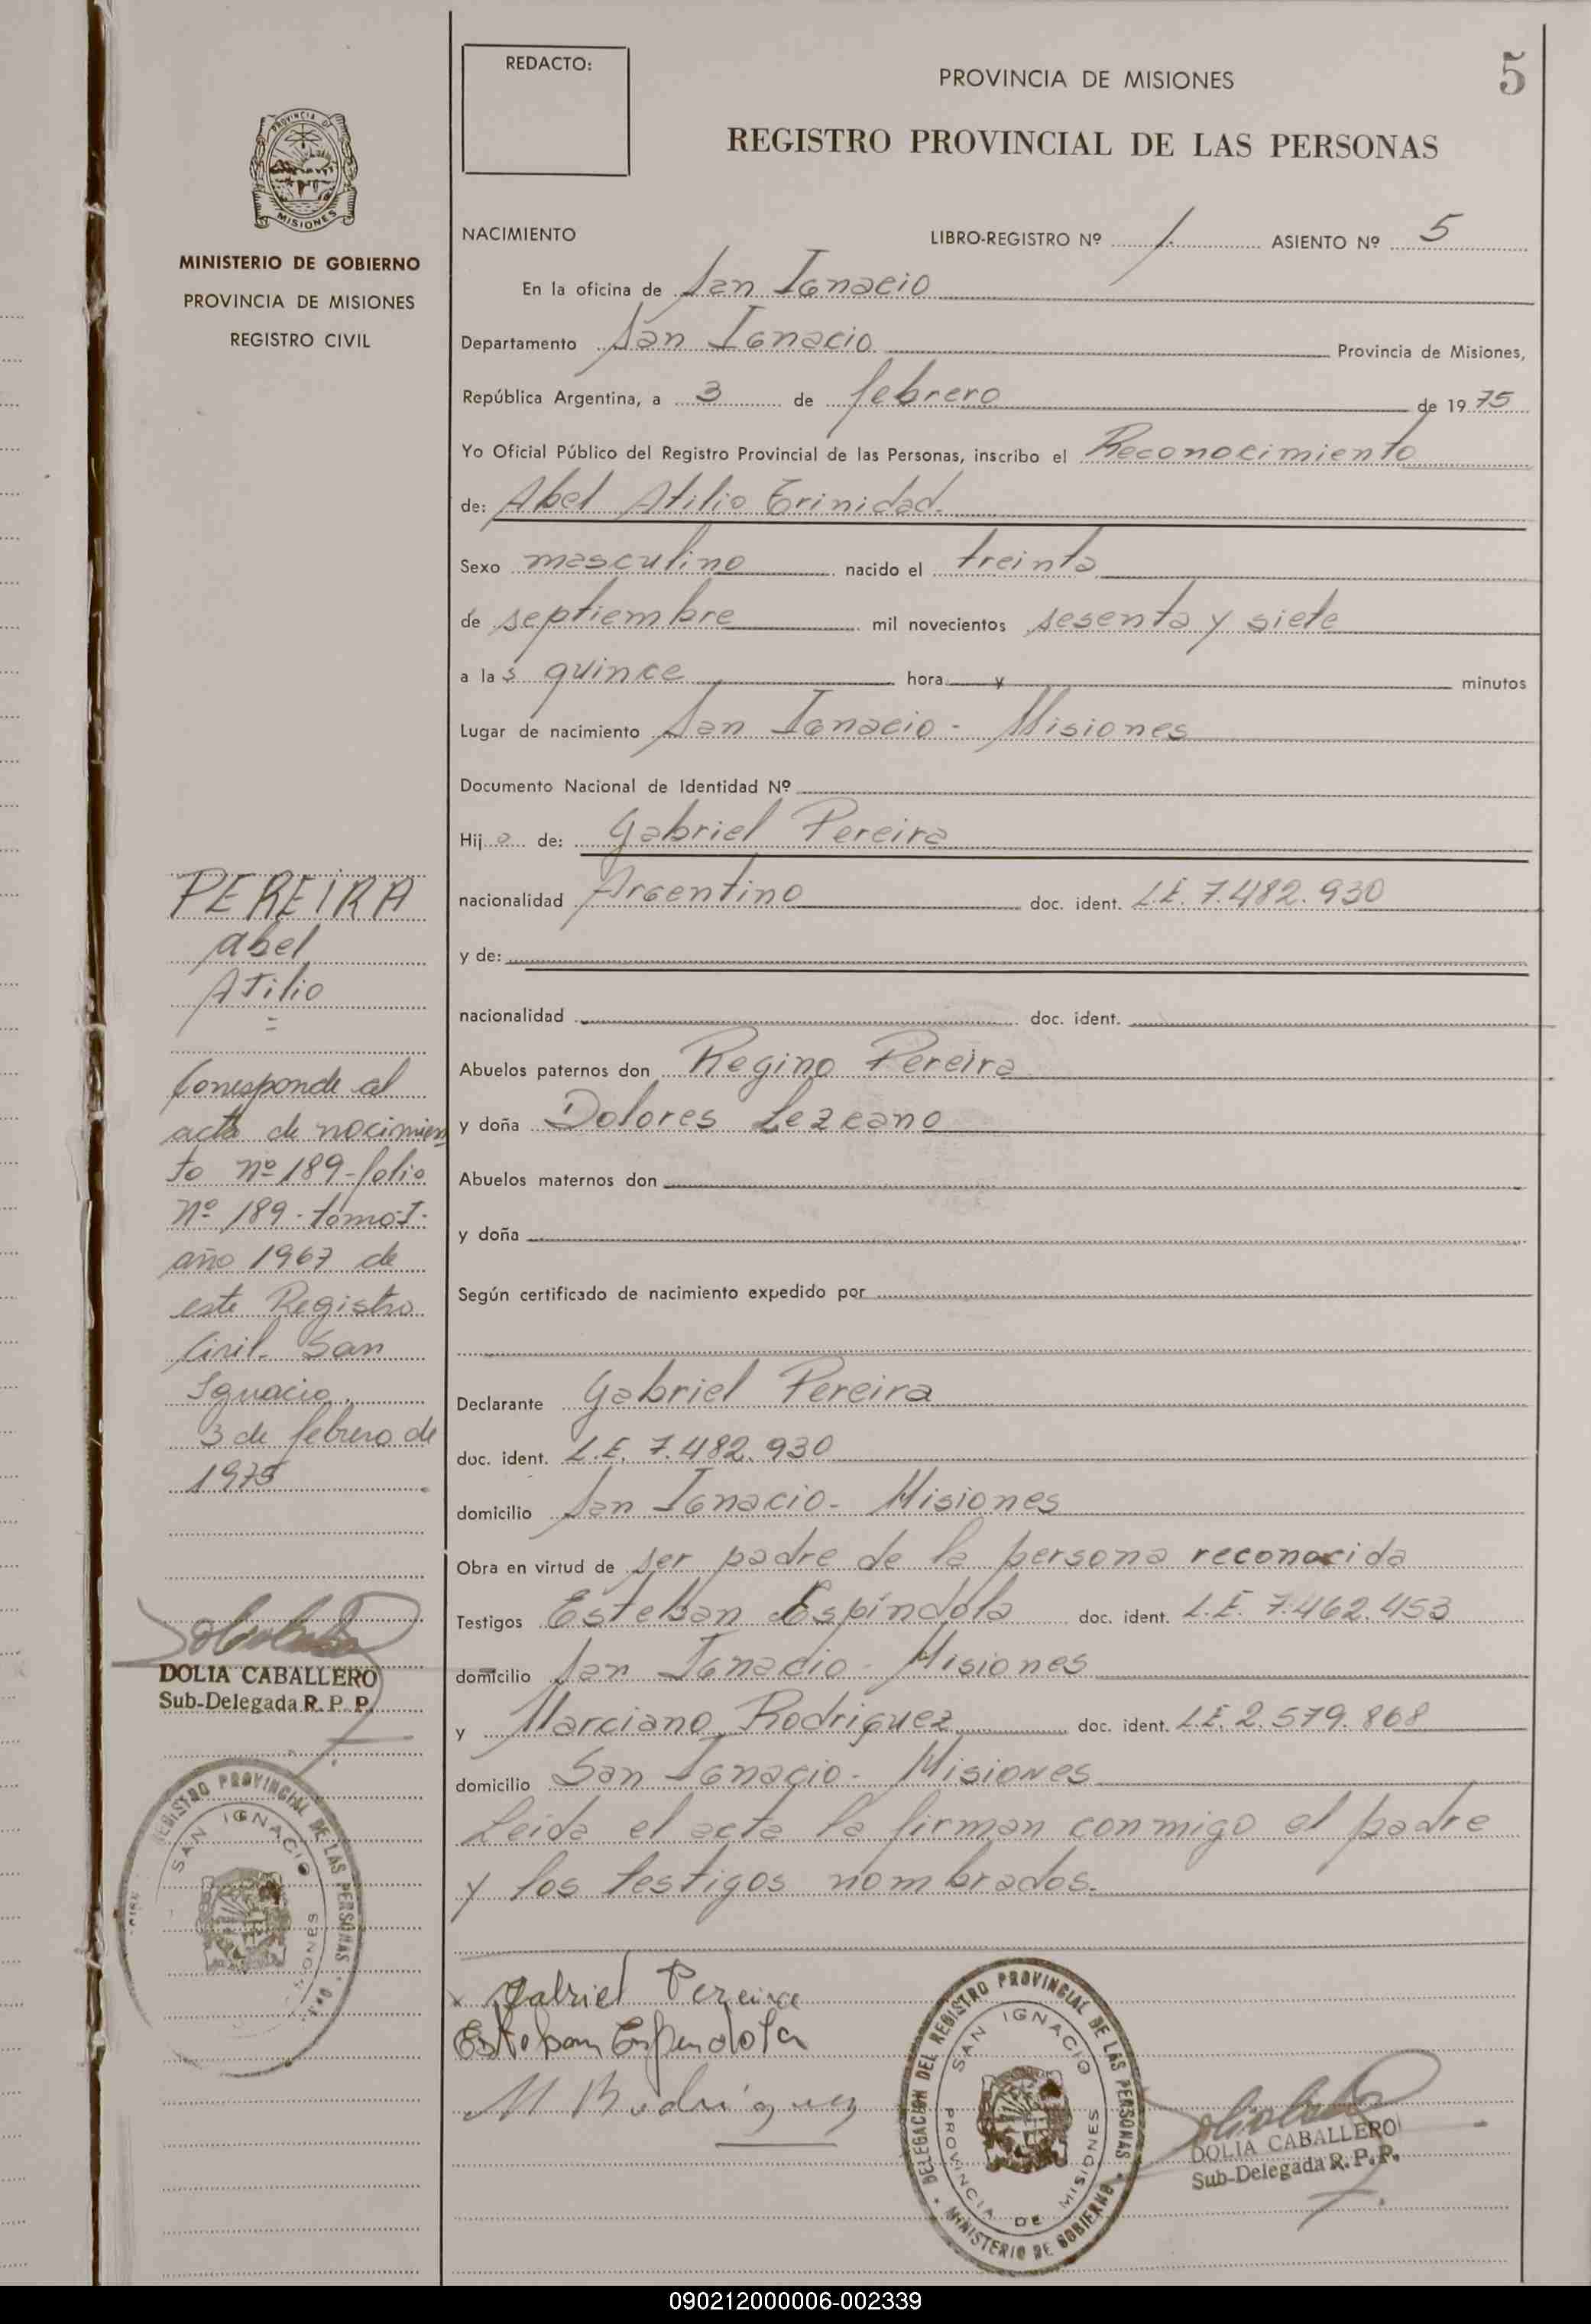 REDACTO:
PROVINCIA DE MISIONES
5
REGISTRO PROVINCIAL DE LAS PERSONAS
PROVINCIA DE
MISIONES
MINISTERIO DE GOBIERNO
PROVINCIA DE MISIONES
REGISTRO CIVIL
NACIMIENTO LIBRO-REGISTRO Nº 1. ASIENTO Nº 5
En la oficina de San Ignacio
Departamento San Ignacio Provincia de Misiones,
República Argentina, a 3 de febrero de 1975
Yo Oficial Público del Registro Provincial de las Personas, inscribo el Reconocimiento
de: Abel Atilio Trinidad.
Sexo masculino nacido el treinta
de septiembre mil novecientos sesenta y siete
a las quince hora y minutos
Lugar de nacimiento San Ignacio - Misiones
Documento Nacional de Identidad Nº
Hijo de: Gabriel Pereira
nacionalidad Argentino doc. ident. L.E. 7.482.930
y de:
nacionalidad doc. ident.
Abuelos paternos don Regino Pereira
y doña Dolores Lezcano
Abuelos maternos don
y doña
Según certificado de nacimiento expedido por
Declarante Gabriel Pereira
doc. ident. L.E. 7.482.930
domicilio San Ignacio - Misiones
Obra en virtud de ser padre de la persona reconocida
Testigos Esteban Espíndola doc. ident. L.E. 7.462.453
domicilio San Ignacio - Misiones
y Marciano Rodriguez doc. ident. L.E. 2.579.868
domicilio San Ignacio - Misiones
Leida el acta la firman conmigo el padre
y los testigos nombrados.
PEREIRA
Abel
Atilio
=
Corresponde al
acta de nacimien
to nº 189-folio
Nº 189-tomo I-
año 1967 de
este Registro
Civil. San
Ignacio,
3 de febrero de
1975
DOLIA CABALLERO
Sub-Delegada R. P. P.
REGISTRO PROVINCIAL DE LAS PERSONAS
SAN IGNACIO
x Gabriel Pereira
Esteban Espindola
M Rodriguez
DELEGACION DEL REGISTRO PROVINCIAL DE LAS PERSONAS
SAN IGNACIO
PROVINCIA DE MISIONES
MINISTERIO DE GOBIERNO
DOLIA CABALLERO
Sub-Delegada R. P. P.
090212000006-002339